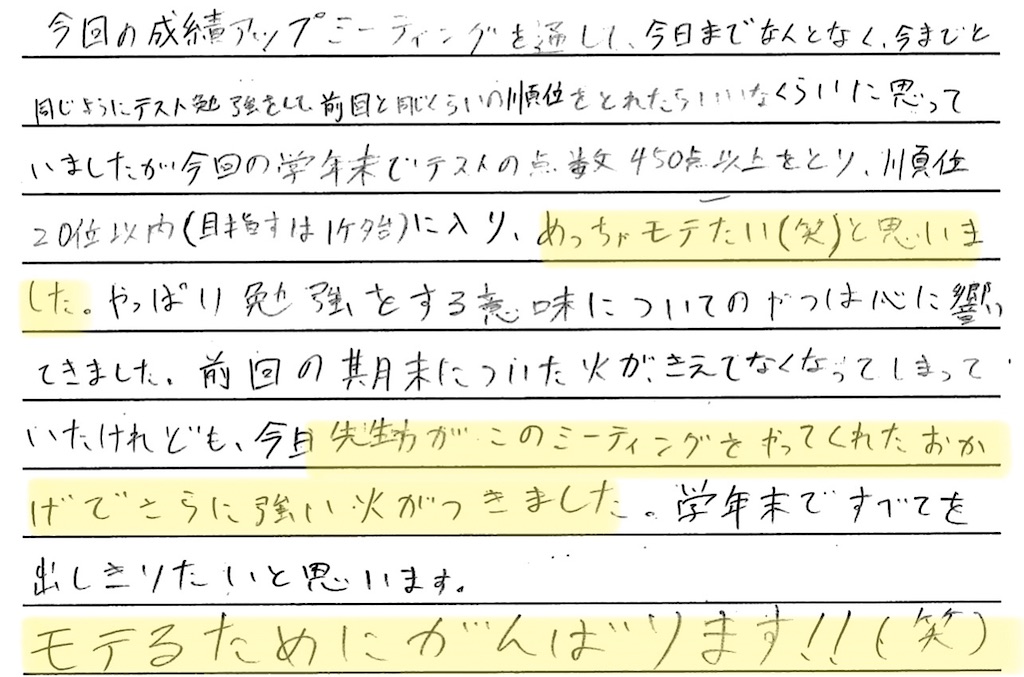 今回の成績アップミーティングを通して、今日までなんとなく、今までと
同じようにテスト勉強をして前回と同じくらいの順位をとれたらいいなくらいに思って
いましたが今回の学年末でテストの点数450点以上をとり、順位
20位以内(目指すは1ケタ台)に入り、めっちゃモテたい(笑)と思いま
した。やっぱり勉強をする意味についてのやつは心に響い
てきました。前回の期末についた火がきえてなくなってしまって
いたけれども、今日先生方がこのミーティングをやってくれたおか
げでさらに強い火がつきました。学年末ですべてを
出しきりたいと思います。
モテるためにがんばります!!(笑)